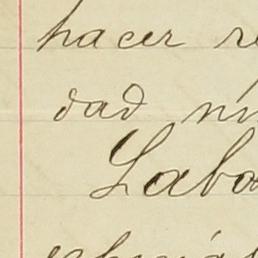 hacer re
dad ni
Laba